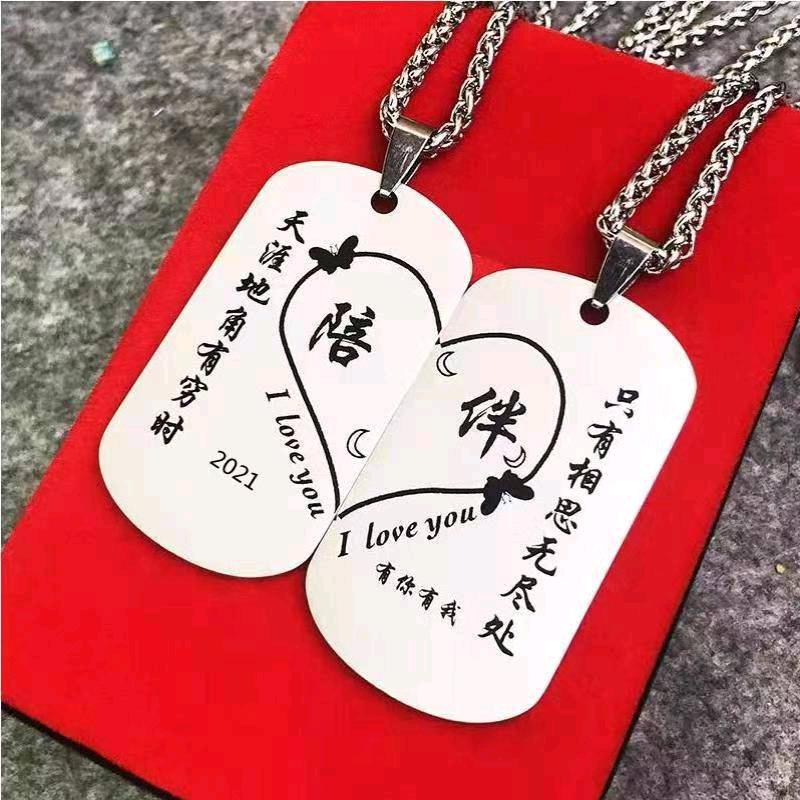 天涯地角有穷时
陪
I love you
2021
伴
I love you
有你有我
只有相思无尽处